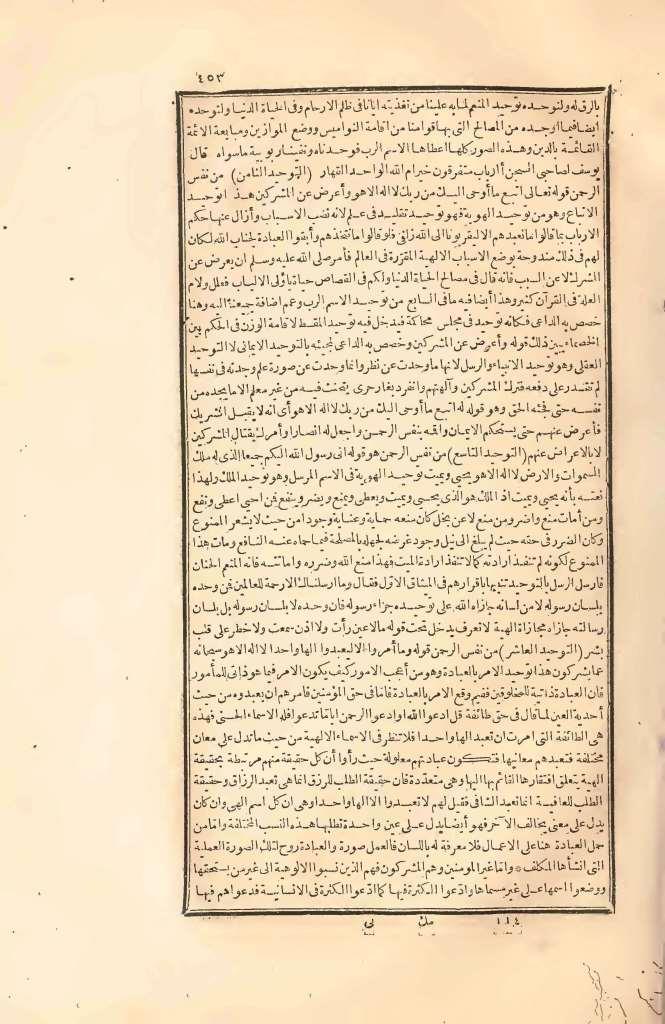 ٤٥٣
بالرق له ولتوحده توحيد المنعم لما به علينا من تغذيته ايانا فى ظلم الارحام وفى الحياة الدنيا ولتوحده
أيضا فيما أوجده من المصالح التى بها قوامنا من اقامة النواميس ووضع الموازين ومبايعة الائمة
القائمة بالدين وهذه الصور كلها اعطاها الاسم الرب فوحدناه ونفينا ربوبية ماسواه قال
يوسف لصاحبى السجن أأرباب متفرقون خير أم الله الواحد القهار (التوحيد الثامن) من نفس
الرحمن قوله تعالى اتبع ما أوحى اليك من ربك لا اله الا هو وأعرض عن المشركين هذا توحيد
الاتباع وهو من توحيد الهوية فهو توحيد تقليد فى علم لانه نصب الاسباب وأزال عنها حكم
الارباب لما قالوا ما نعبدهم الا ليقربونا الى الله زلفى فلو قالوا ما نتخذهم وأبقوا العبادة لجناب الله لكان
لهم فى ذلك مندوحة بوضع الاسباب الالهية المقررة فى العالم فأمر صلى الله عليه وسلم ان يعرض عن
الشرك لا عن السبب فانه قال فى مصالح الحياة الدنيا ولكم فى القصاص حياة يا أولى الالباب فعلل ولام
العلة فى القرآن كثير وهذا أيضا فيه ما فى السابع من توحيد الاسم الرب وعمم اضافة جميعنا اليه وهنا
خصص به الداعى فكأنه توحيد فى مجلس محاكمة فيدخل فيه توحيد المقسط لاقامة الوزن فى الحكم بين
الخصماء يبين ذلك قوله وأعرض عن المشركين وخصص به الداعى لمجيئه بالتوحيد الايمانى لا التوحيد
العقلى وهو توحيد الانبياء والرسل لانها ما وحدت عن نظر وانما وحدت عن صورة علم وجدته فى نفسها
لم تقدر على دفعه فترك المشركين وآلهتهم وانفرد بغار حرى يتحنث فيه من غير معلم الا ما يجده من
نفسه حتى فجئه الحق وهو قوله له اتبع ما أوحى اليك من ربك لا اله الا هو أى أنه لا يقبل الشريك
فأعرض عنهم حتى يستحكم الايمان واقمه بنفس الرحمن واجعل له انصارا وأمرك بقتال المشركين
لا بالاعراض عنهم (التوحيد التاسع) من نفس الرحمن هو قوله انى رسول الله اليكم جميعا الذى له ملك
السموات والارض لا اله الا هو يحيى ويميت توحيد الهوية فى الاسم المرسل وهو توحيد الملك ولهذا
نعته بأنه يحيى ويميت اذ الملك هو الذى يحيى ويميت ويعطى ويمنع ويضر وينفع فمن احيى اعطى ونفع
ومن أمات منع وأضر ومن منع لا عن بخل كان منعه حماية وعناية وجودا من حيث لا يشعر الممنوع
وكان الضرر فى حقه حيث لم يبلغ الى نيل وجود غرضه لجهله بالمصلحة فيما حماه عنه النافع ومات هذا
الممنوع لكونه لم تنفذ ارادته كما لا تنفذ ارادة الميت فهذا منع الله وضرره واماتته فانه المنعم الحنان
فأرسل الرسل بالتوحيد تنبيها باقرارهم فى الميثاق الاول فقال وما أرسلناك الا رحمة للعالمين فمن وحده
بلسان رسوله لا من لسانه جازاه الله على توحيده جزاء رسوله فان وحده لا بلسان رسوله بل بلسان
رسالته جازاه مجازاة الهية لا تعرف يدخل تحت قوله ما لا عين رأت ولا اذن سمعت ولا خطر على قلب
بشر (التوحيد العاشر) من نفس الرحمن قوله وما أمروا الا ليعبدوا الها واحدا لا اله الا هو سبحانه
عما يشركون هذا توحيد الامر بالعبادة وهو من أعجب الامور كيف يكون الامر فيما هو ذاتى للمأمور
فان العبادة ذاتية للمخلوقين ففيم وقع الامر بالعبادة فأما فى حق المؤمنين فأمرهم ان يعبدوه من حيث
أحدية العين لما قال فى حق طائفة قل ادعوا الله او ادعوا الرحمن ايا ما تدعوا فله الاسماء الحسنى فهذه
هى الطائفة التى امرت ان تعبد الها واحدا فلا تنظر فى الاسماء الالهية من حيث ما تدل على معان
مختلفة فتعبدهم معانيها فتكون عبادتهم معلولة حيث رأوا أن كل حقيقة منهم مرتبطة بحقيقة
الهية يتعلق افتقارها القائم بها اليها وهى متعددة فان حقيقة الطلب للرزق انما هى تعبد الرزاق وحقيقة
الطلب للعافية انما تعبد الشافى فقيل لهم لا تعبدوا الا الها واحدا وهى ان كل اسم الهى وان كان
يدل على معنى يخالف الآخر فهو أيضا يدل على عين واحدة تطلبها هذه النسب المختلفة واما من
حمل العبادة هنا على الاعمال فلا معرفة له باللسان فالعمل صورة والعبادة روح لتلك الصورة العملية
التى انشأها المكلف * واما غير المومنين وهم المشركون فهم الذين نسبوا الالوهية الى غير من يستحقها
ووضعوا اسمها على غير مسماها وادعوا الكثرة فيها كما ادعوا الكثرة فى الانسانية فدعواهم فيها
١١٤ مك نى